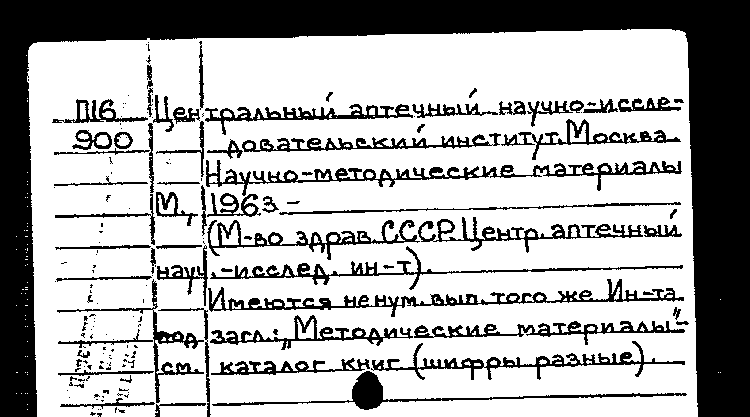 П16 Центральный аптечный научно-иссле-
900 довательский институт. Москва.
Научно-методические материалы
М., 1963 -
(М-во здрав. СССР. Центр. аптечный
науч.-исслед. ин-т).
Имеются ненум. вып. того же Ин-та
под загл.: „Методические материалы"-
см. каталог книг (шифры разные).